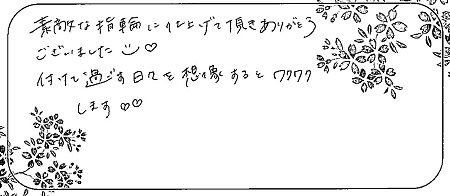 素敵な指輪に仕上げて頂きありがとう
ございました☺♡
付けて過ごす日々を想像するとワクワク
します♡♡